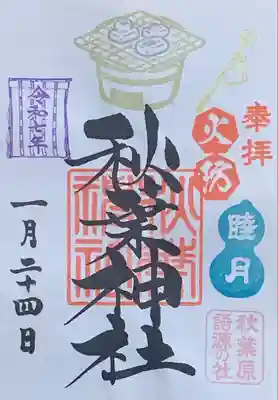 奉拝
火の坊
睦月
秋葉原
語源の社
秋葉神社
秋葉神社
令和七年
一月二十四日